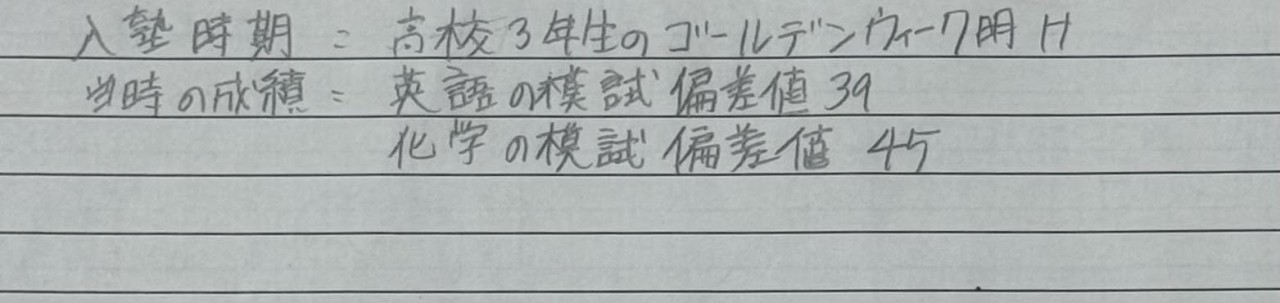 入塾時期：高校3年生のゴールデンウィーク明け
当時の成績：英語の模試偏差値 39
化学の模試偏差値 45